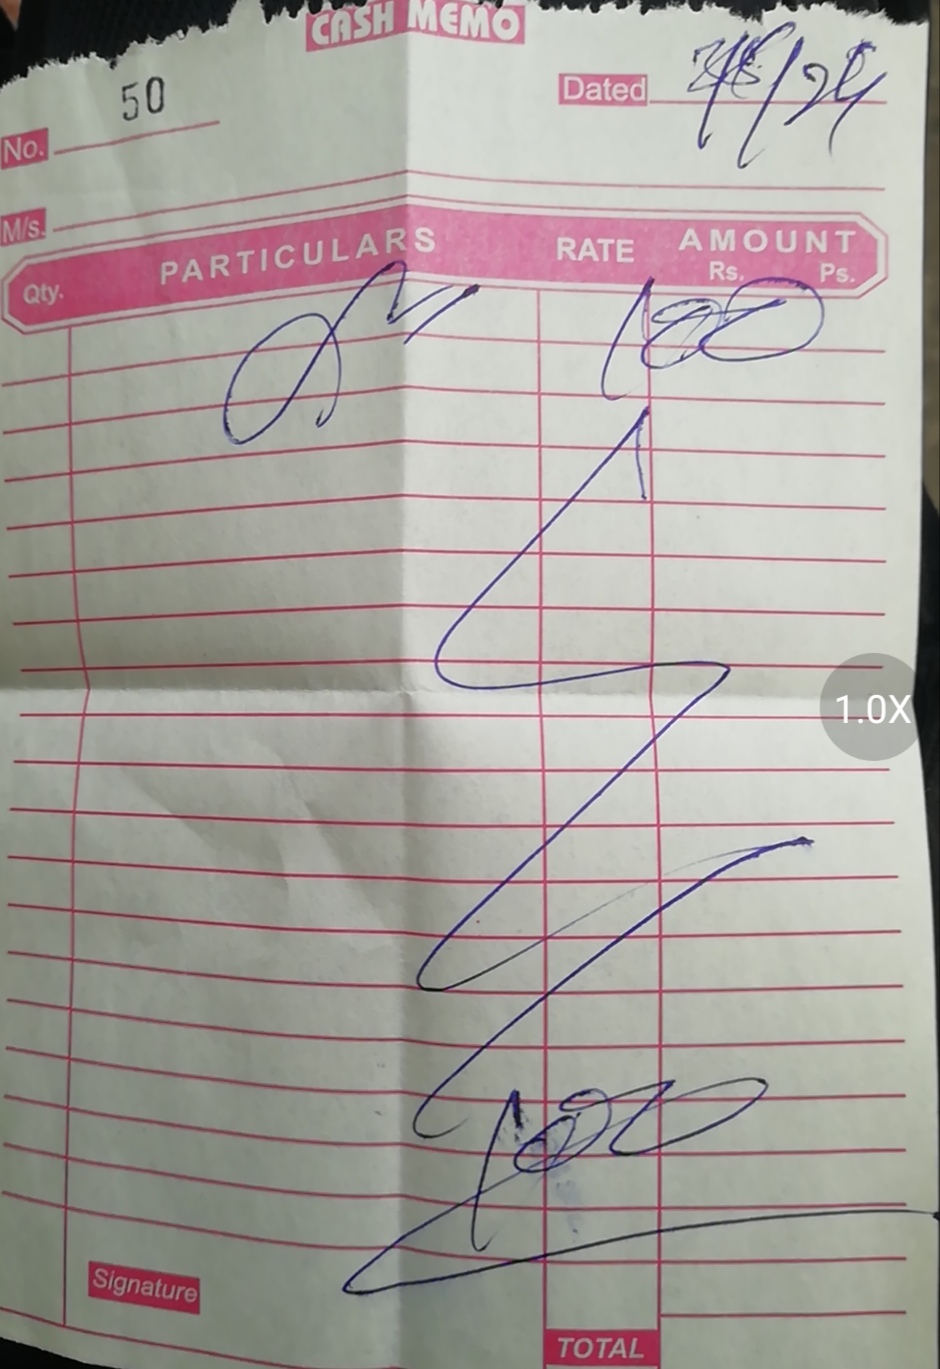 CASH MEMO
No. 50
Dated
M/s.
Qty. PARTICULARS RATE AMOUNT
Rs. Ps.
100
100
Signature
TOTAL
1.0X